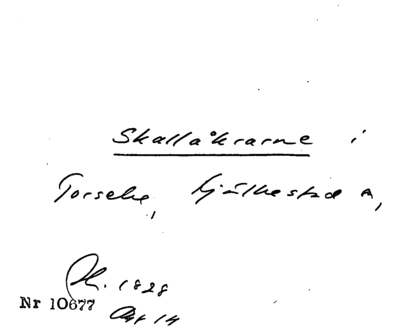 Skallåkrarne i
Torsebe, Gjälkestad
1828
Nr 10677
Akt 14